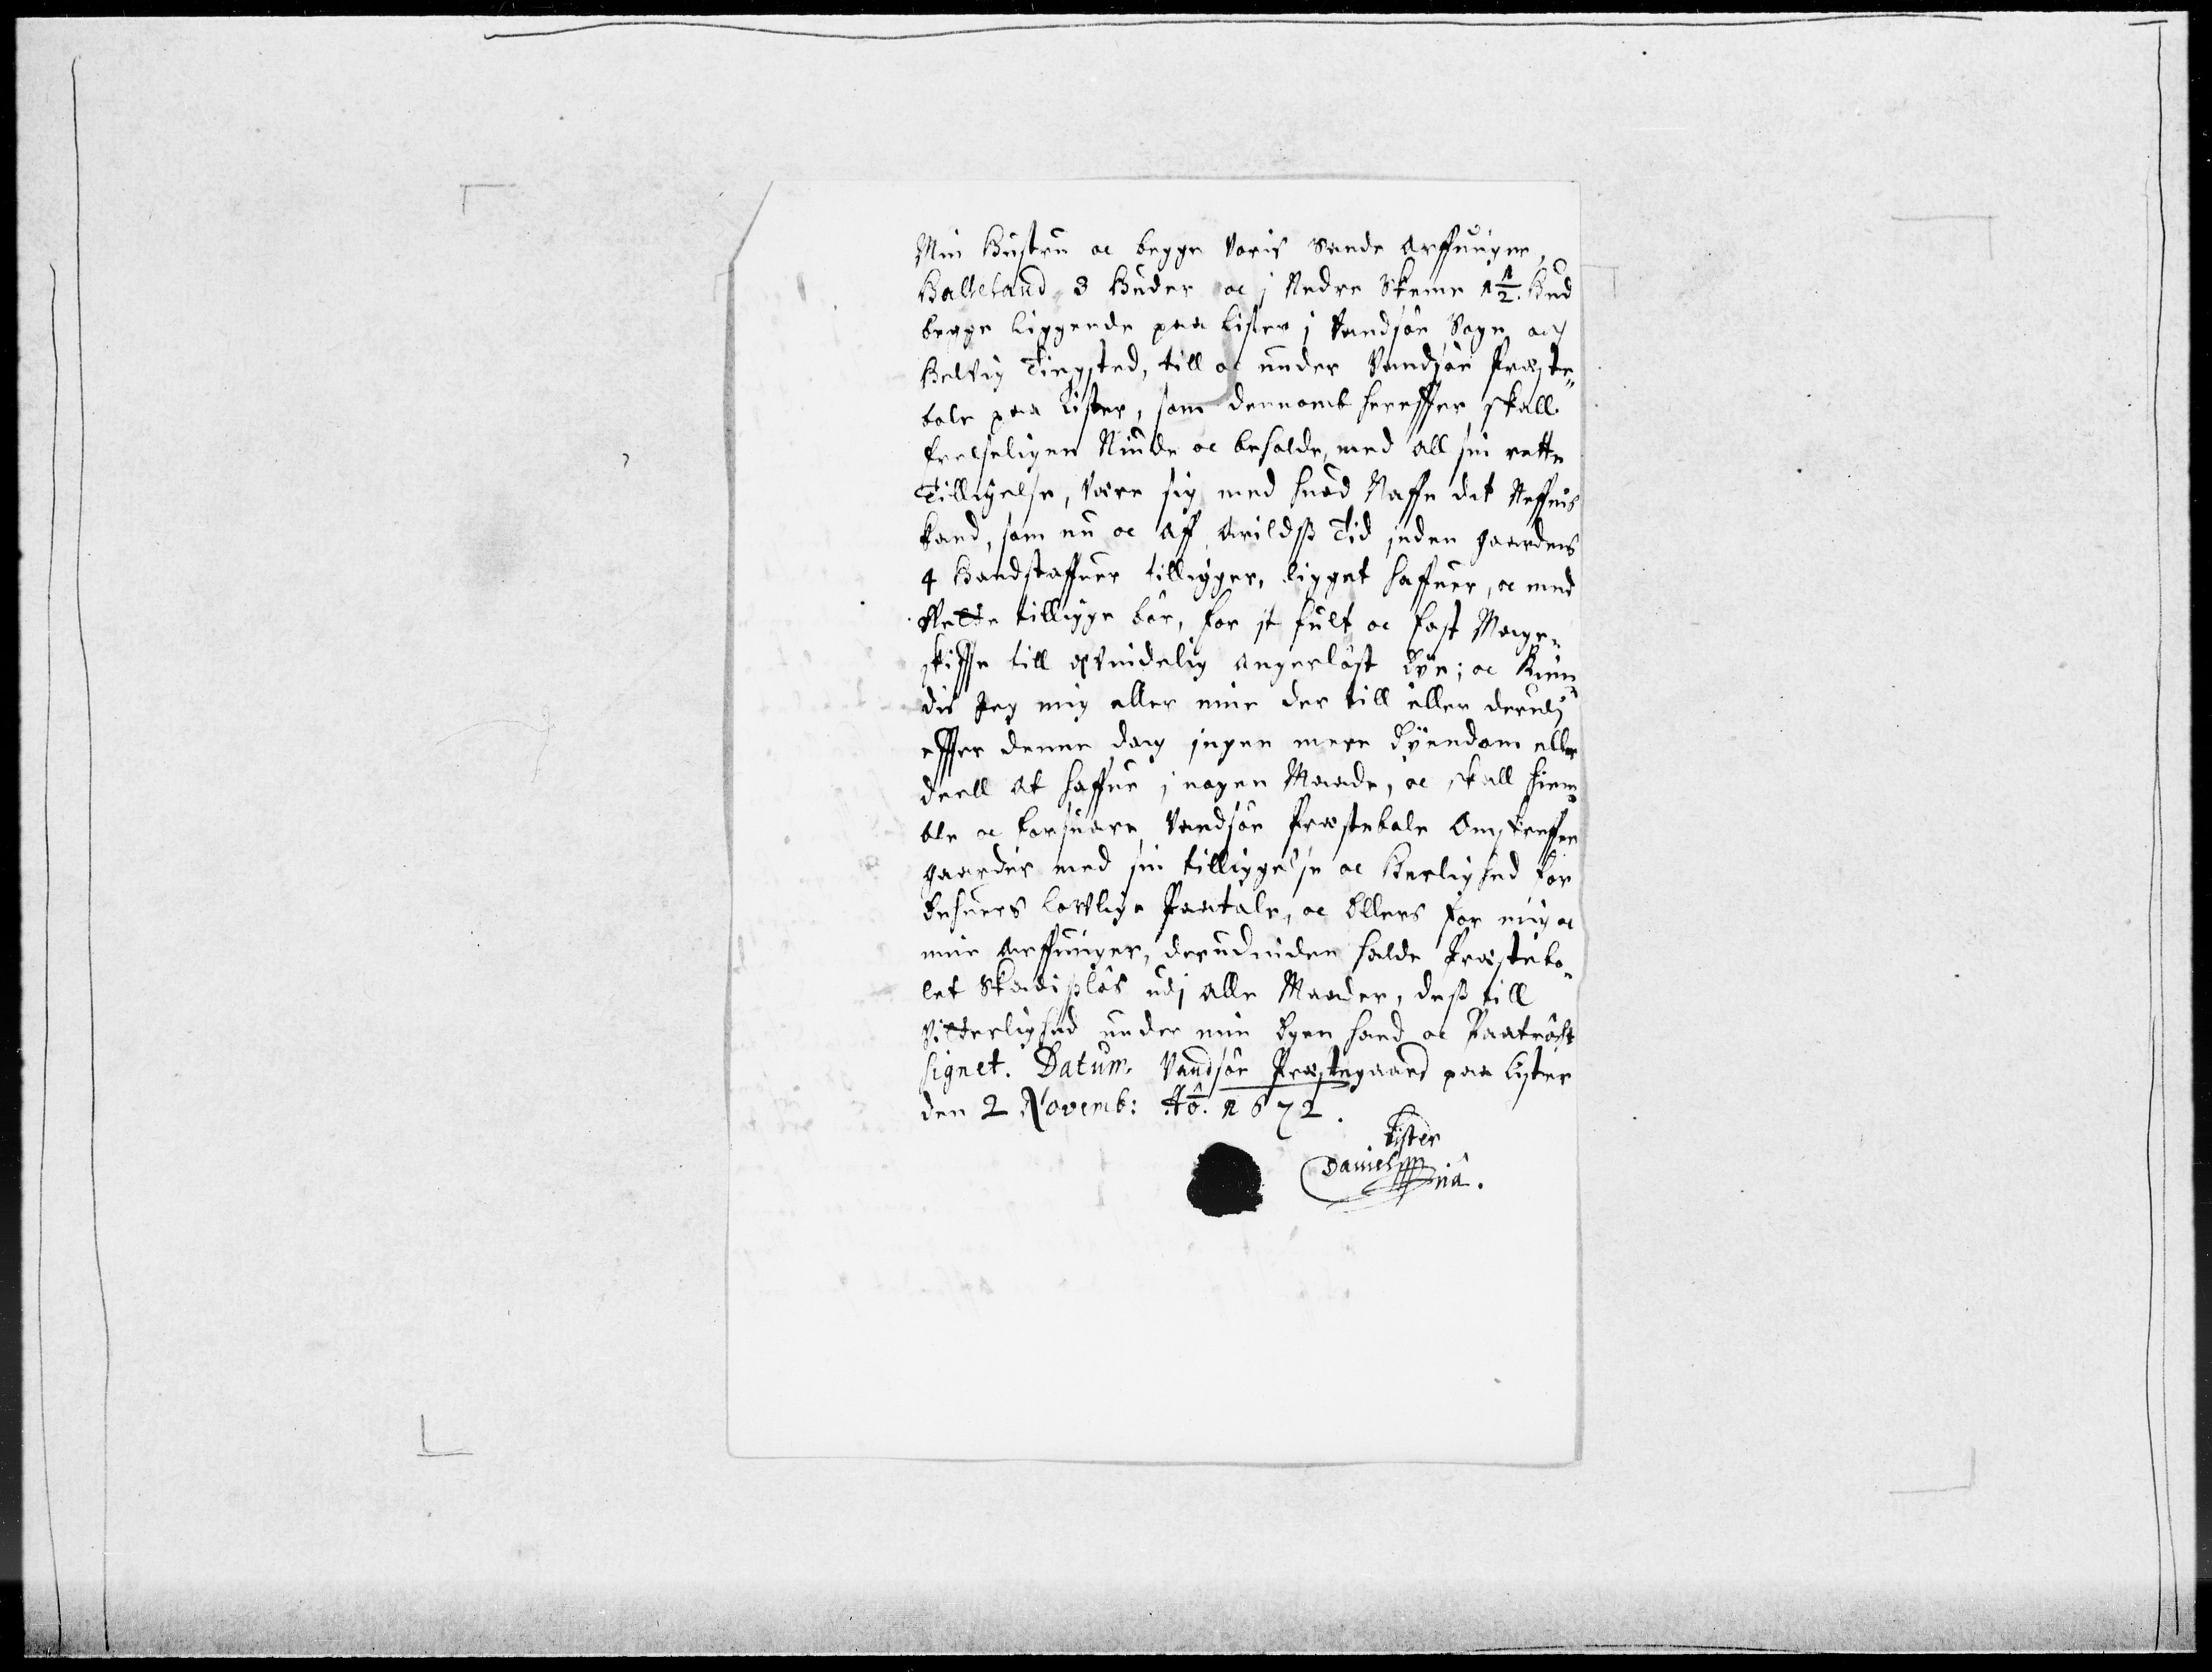 Min Hustru oc begge voris Sande Arffuinger,
Halleland 3 Huder oc j Nedre Skeime 1 1/2. Hud
begge liggende paa Lister j Vandsøe Sogn och
Helvig Tingsted, till oc under Vandsøe Præste„
bole paa Lister, som dennomb hereffter skall
frelseligen Niude oc beholde, med all sin rette
Tilligelse, være sig med huad Naffn det Neffnis
kand, som nu oc aff Arildß Tid inden gaardens
4 Handstaffuer tilligger, ligget haffuer, oc med
Rette tilligge bør, for it fult oc fast Mage„
skiffte till ævindelig angerløst Eye; oc Kien„
dis Jeg mig eller mine der till eller derudj
effter denne dag ingen mere Eyendom eller
deell at haffue j nogen Maade, oc skall hiem„
ble oc forsuare Vandsøe Præstebole Omskreffne
gaarder med sin tilliggelse oc Herlighed for
huers lowlige Paatale, oc Ellers for mig oc
mine Arffuinger, derudinden holde Præstebo„
let Skadisløs udj alle Maader, deß till
Vitterlighed under min Egen Hand oc Paatrøchte
Signet. Datum. Vandsøe Præstegaard paa Lister
den 2 Novemb: Aō. 1672.
Danielss